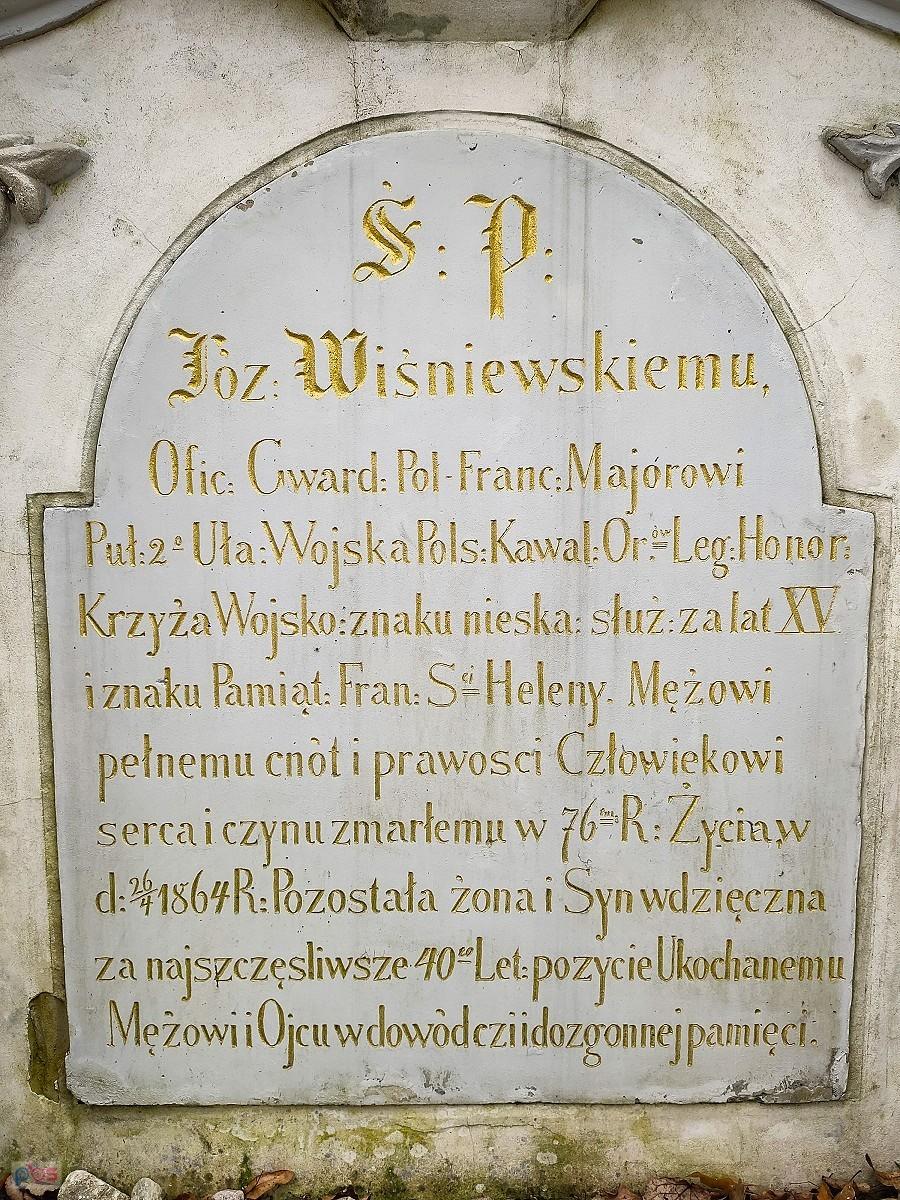 Ś: P:
Józ: Wiśniewskiemu,
Ofic: Gward: Pol-Franc: Majórowi
Puł: 2º Uła: Wojska Pols: Kawal: Or:ów Leg: Honor:
Krzyża Wojsko: znaku nieska: służ: za lat XV
i znaku Pamiąt: Fran: Sej Heleny. Mężowi
pełnemu cnòt i prawosci Człowiekowi
serca i czynu zmarłemu w 76em: R: Życia, w
d: 26/4 1864 R: Pozostała żona i Syn wdzięczna
za najszczęsliwsze 40eo Let: pozycie Ukochanemu
Mężowi i Ojcu w dowòd czci i dozgonnej pamięci.
pbs